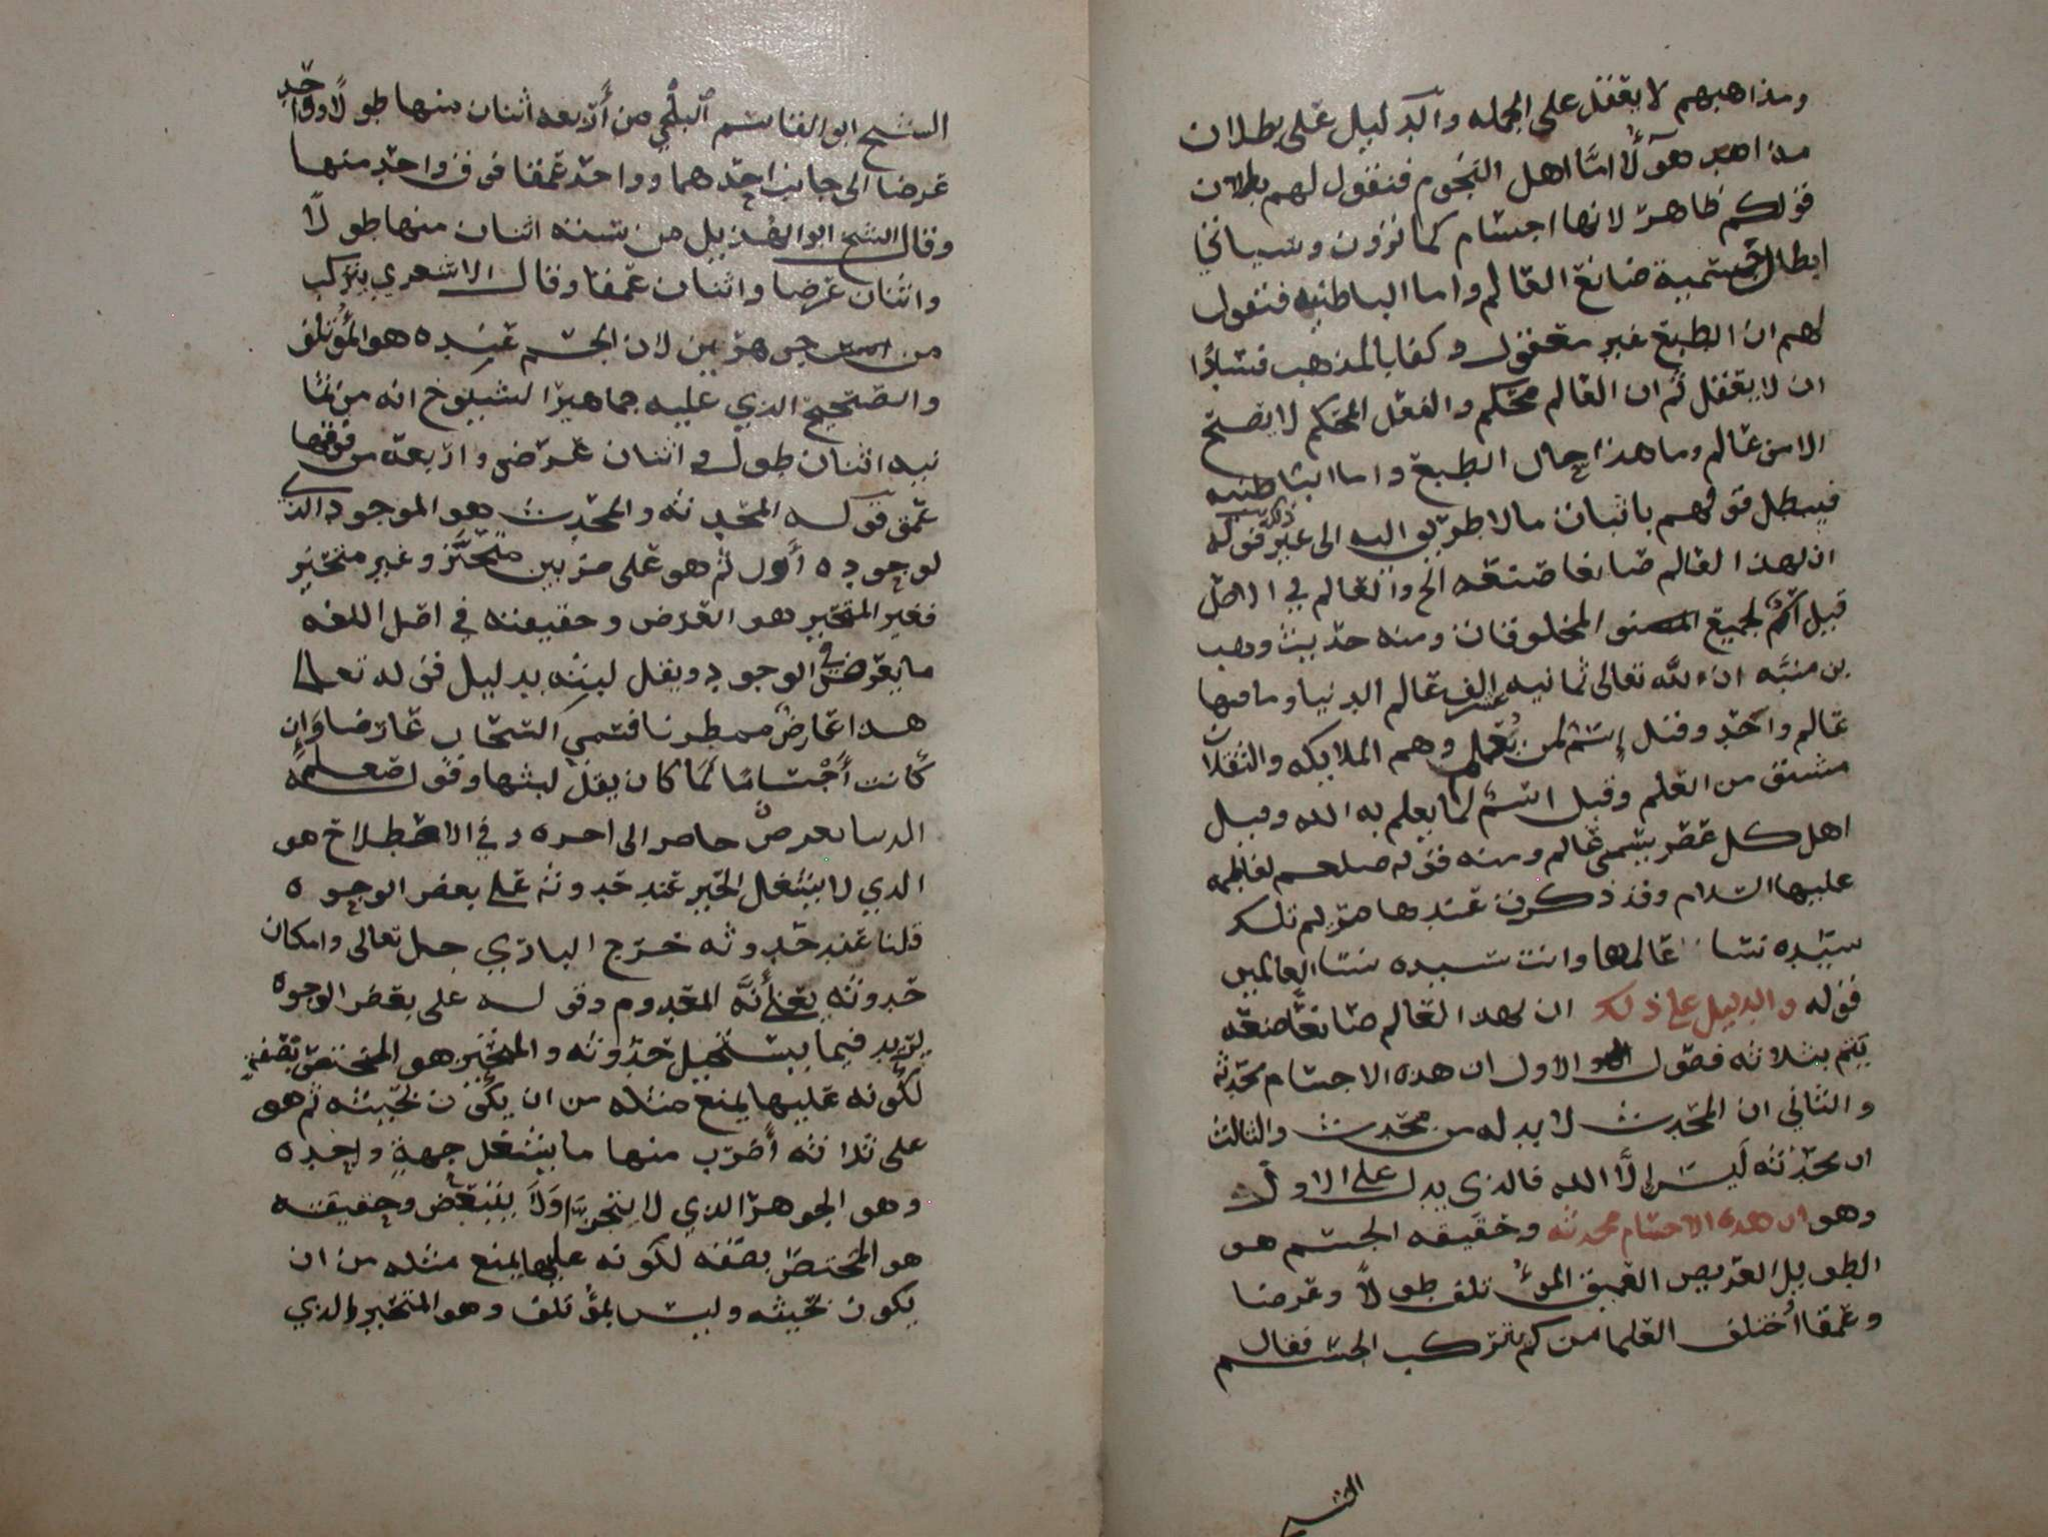 ومذاهبهم لا يعقل على الجمله والدليل على بطلان
مذاهب هؤلآ امّا اهل النجوم فنقول لهم بطلان
قولكم ظاهر لانها اجسام كما ترون وسياتي
ابطال جسمية صانع العالم واما الباطنيه فنقول
لهم ان الطبع غير معقول وكفا بالمذهب فسادًا
ان لا يعقل ثم ان العالم محكم والفعل المحكم لا يصح
الا من عالم وما هذا حال الطبع واما الباطنيه
فيبطل قولهم باثبات ما لا طريق اليه الى غير ذلك قوله
ان لهذا العالم صانعا صنعه الخ والعالم في الاصل
قيل اسمٌ لجميع المخلوقات ومنه حديث وهب
بن منبّه ان لله تعالى ثمانيه عشر الف عالم الدنيا وما فيها
عالم واحد وقيل إسمٌ لمن يُعلم وهم الملايكه والثقلان
مشتق من العلم وقيل اسمٌ لما يعلم به الله وقيل
اهل كل عصر يسمى عالم ومنه قوله صلعم لفاطمه
عليها السلام وقد ذكرت عندها مريم تلك
سيّده نسا عالمها وانت سيده نسا العالمين
قوله والدليل على ذلك ان لهدا العالم صانعًا صنعه
يتم بثلاثه فصول الاول ان هده الاجسام محدثه
والثاني ان المحدث لا بد له من محدث والثالث
ان محدثه ليس إلّا الله فالذي يدل على الاول
وهو ان هده الاجسام محدثه وحقيقه الجسم هو
الطويل العريض العميق المؤتلف طولًا وعرضا
وعمقا اُختلف العلما من كم يتركب الجسم فقال
الشيخ
الشيخ ابو القاسم البلخي من أربعه اثنان منها طولًا وواحد
عرضا الى جانب احدهما وواحد عمقا فوق واحد منها
وقال الشيخ ابو الهذيل من سته اثنان منها طولًا
واثنان عرضا واثنان عمقا وقال الاشعري يتركب
من جوهرين لان الجسم عنده هو المؤتلف
والصحيح الذي عليه جماهير الشيوخ انه من ثما
نيه اثنان طول واثنان عرض واربعه من فوقها
عمق قوله المحدثه والمحدث هو الموجود الذي
لوجوده أول ثم هو على ضربين متحيّز وغير متحيز
فغير المتحيز هو العرض وحقيقته في اصل اللغه
ما يعرض في الوجود ويقل لبثه بدليل قوله تعالى
هدا عارضٌ ممطرنا فسمي السحاب عارضا وَإن
كانت أجسامًا لمَا كان يقل لبثها وقول صلعم
الدنيا عرضٌ حاضر الى اخره وفي الاصطلاح هو
الذي لا يشغل الحيز عند حدوثه على بعض الوجوه
قلنا عند حدوثه خرج الباري جل تعالى وامكان
حدوثه يعني أنّه المعدوم وقوله على بعض الوجوه
ليزيد فيما يستحيل حدوثه والمتحيز هو المختص بصفه
لكونه عليها يمنع مثله من ان يكون بحيثه ثم هو
على ثلاثه أضرب منها ما يشغل جهةٍ واحده
وهو الجوهر الذي لا يتجزّا وَلَا يتبعض وحقيقته
هو المختص بصفه لكونه عليها يمنع مثله من ان
يكون بحيثه وليس بمؤتلف وهو المتحيز الذي